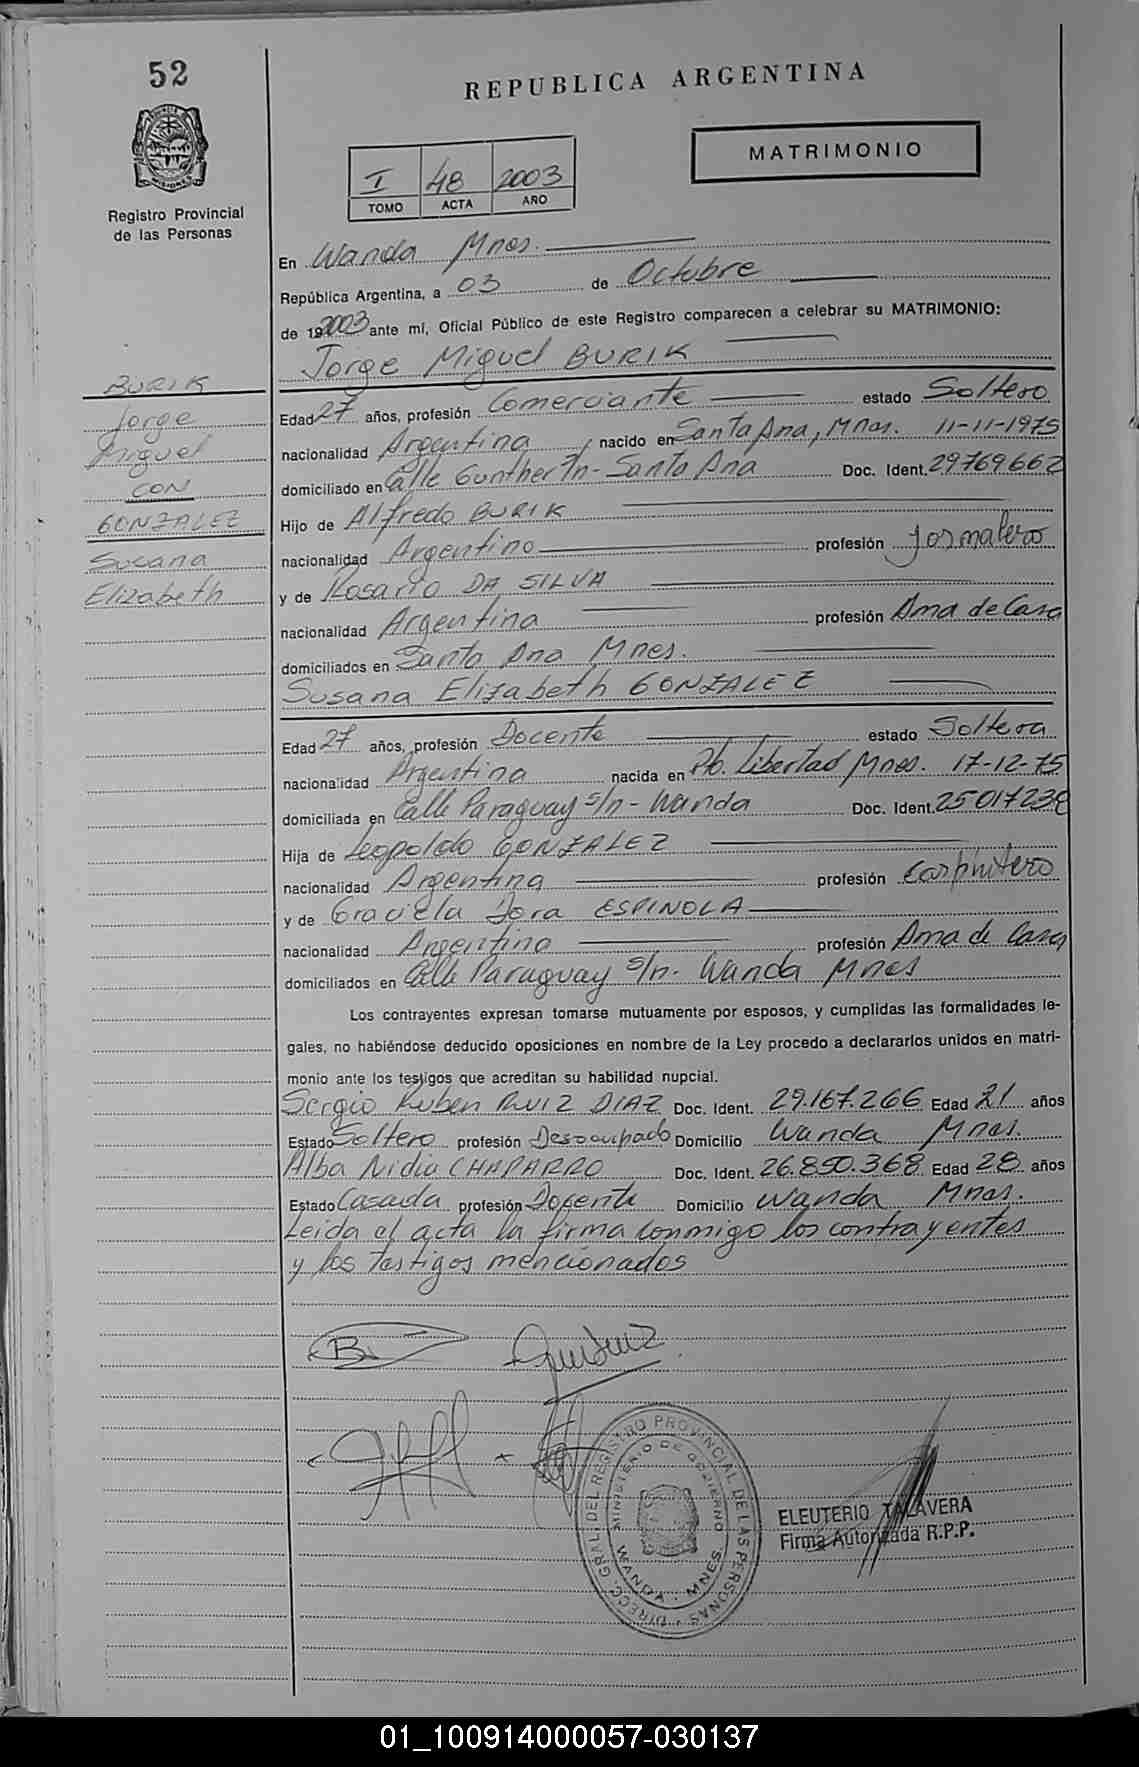 52
REPUBLICA ARGENTINA
MATRIMONIO
I 48 2003
TOMO ACTA AÑO
MISIONES
Registro Provincial
de las Personas
En Wanda Mnes.
República Argentina, a 03 de Octubre
de 192003 ante mí, Oficial Público de este Registro comparecen a celebrar su MATRIMONIO:
Jorge Miguel BURIK
BURIK
Jorge
Miguel
CON
GONZALEZ
Susana
Elizabeth
Edad 27 años, profesión Comerciante estado Soltero
nacionalidad Argentina, nacido en Santa Ana, Mnes. 11-11-1975
domiciliado en Calle Gunther S/n - Santa Ana Doc. Ident. 29769662
Hijo de Alfredo BURIK
nacionalidad Argentino profesión Jornalero
y de Rosario DA SILVA
nacionalidad Argentina profesión Ama de Casa
domiciliados en Santa Ana Mnes.
Susana Elizabeth GONZALEZ
Edad 27 años, profesión Docente estado Soltera
nacionalidad Argentina nacida en Pto. Libertad Mnes. 17-12-75
domiciliada en Calle Paraguay s/n - Wanda Doc. Ident. 25017238
Hija de Leopoldo GONZALEZ
nacionalidad Argentina profesión Carpintero
y de Graciela Dora ESPINOLA
nacionalidad Argentina profesión Ama de Casa
domiciliados en Calle Paraguay s/n - Wanda Mnes
Los contrayentes expresan tomarse mutuamente por esposos, y cumplidas las formalidades le-
gales, no habiéndose deducido oposiciones en nombre de la Ley procedo a declararlos unidos en matri-
monio ante los testigos que acreditan su habilidad nupcial.
Sergio Ruben RUIZ DIAZ Doc. Ident. 29.167.266 Edad 21 años
Estado Soltero profesión Desocupado Domicilio Wanda Mnes.
Alba Nidia CHAPARRO Doc. Ident. 26.850.368 Edad 28 años
Estado Casada profesión Docente Domicilio Wanda Mnes.
Leida el acta la firma conmigo los contrayentes
y los testigos mencionados
DIRECC. GRAL. DEL REGISTRO PROVINCIAL DE LAS PERSONAS
MINISTERIO DE GOBIERNO
WANDA - MNES.
ELEUTERIO TALAVERA
Firma Autorizada R.P.P.
01_100914000057-030137